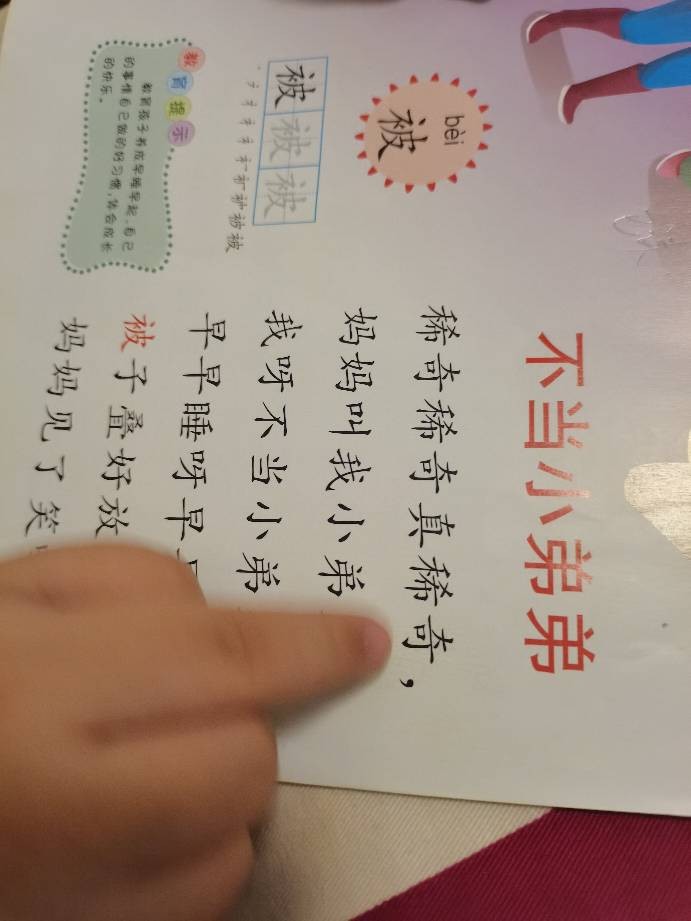 不当小弟弟
稀奇稀奇真稀奇，
妈妈叫我小弟
我呀不当小弟
早早睡呀早
被子叠好放
妈妈见了笑
bèi
被
被被被
教育提示
教育孩子养成早睡早起、自己
的事情自己做的好习惯，体会成长
的快乐。